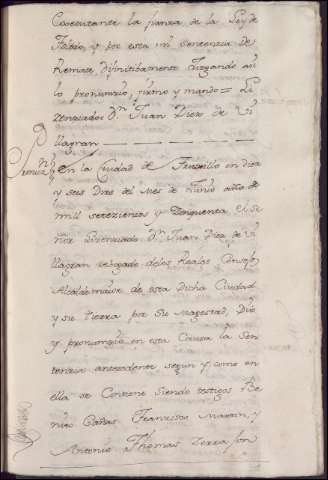 Executante la fianza de la Ley de
Toledo, y por esta mi Sentencia de
Remate difinitibamente Juzgando asi
lo pronuncio, firmo y mando = Li
Zenciados Dn. Juan Diez de Vi
llagran
En la Ciudad de Truxillo en diez
y seis Dias del Mes de Junio año de
mil setezientos y Zinquenta el Se
ñor Lizenciado Dn. Juan Diez de Vi
llagran Abogado delos Reales Consejos
Alcalde maior de esta Dicha Ciudad
y su tierra por Su Magestad, Dio
y pronunzio en esta Causa la Sen
tenzia antezedente segun y como en
ella se Contiene siendo testigos Be
nito Cañas Francisco Martin, y
Antonio Thomas Zerra son